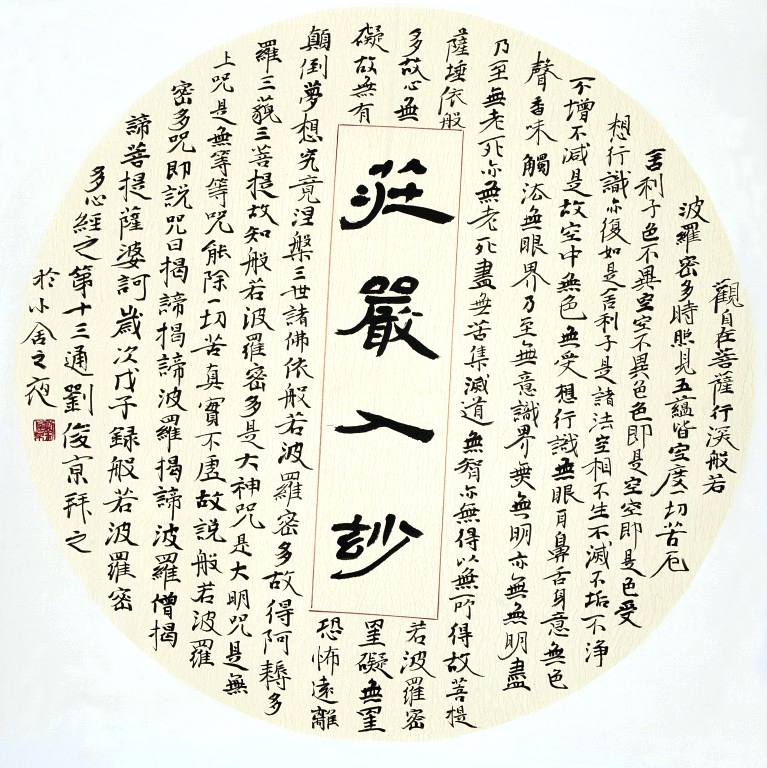 觀自在菩薩行深般若
波羅密多時照見五蘊皆空度一切苦厄
舍利子色不異空空不異色色即是空空即是色受
想行識亦復如是舍利子是諸法空相不生不滅不垢不淨
不增不減是故空中無色無受想行識無眼耳鼻舌身意無色
聲香味觸法無眼界乃至無意識界無無明亦無無明盡
乃至無老死亦無老死盡無苦集滅道無智亦無得以無所得故菩提
薩埵依般
若波羅密
多故心無
罣礙無罣
礙故無有
恐怖遠離
顛倒夢想究竟涅槃三世諸佛依般若波羅密多故得阿耨多
羅三藐三菩提故知般若波羅密多是大神咒是大明咒是無
上咒是無等等咒能除一切苦真實不虛故說般若波羅
密多咒即說咒曰揭諦揭諦波羅揭諦波羅僧揭
諦菩提薩婆訶歲次戊子錄般若波羅密
多心經之第十三通劉俊京拜之
於小舍之夜
莊嚴入玅